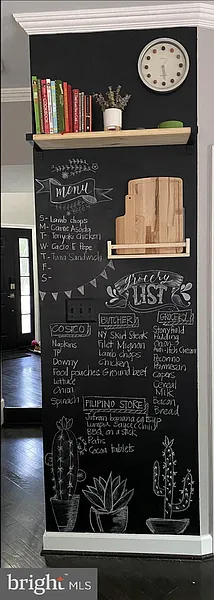 menu
S- Lamb chops
M- Carne Asada
T- Teriyaki chicken
W- Cacio E Pepe
T- Tuna Sandwich
F-
S-
Grocery
LIST
COSTCO
Napkins
TP
Downy
Food pouches
Lettuce
Chia
Spinach
BUTCHER
NY Skirt Steak
Filet Mignon
Lamb chops
Chicken
Ground beef
GROCERY
Stonyfield
Pudding
Anti-itch Cream
Pecorino
Parmesan
Capers
Cereal
Milk
Bacon
Bread
FILIPINO STORE
Jufran banana catsup
Lumpia Sauce (chili)
BBQ on a stick
Patis
Cocoa tablets
bright MLS